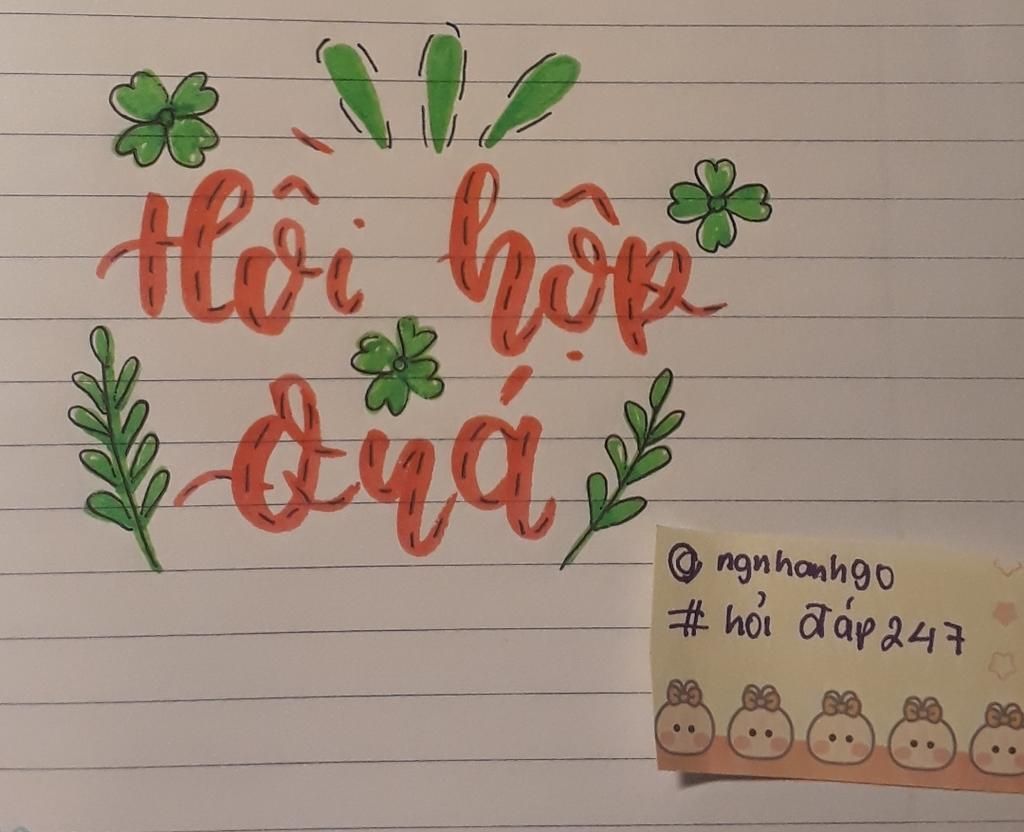 Hồi hộp
Quá
@ngnhanh90
#hỏi đáp247